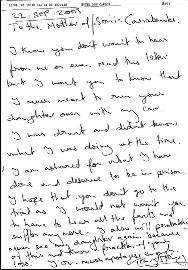 22 SEP 2000
To the Mother of Sonia
I know you don't want to hear
from me or even read this letter
but I want you to know that
I never meant to run your
daughter over with my car
I was drunk and didn't know
what I was doing at the time.
I am ashamed for what I have
done and deserve to be in prison.
I hope that you don't go to the
trial as I would not want you
to have to hear all the facts and
suffer any more. I also will probably
never see my daughter again because
of this and know a fraction of your
loss.